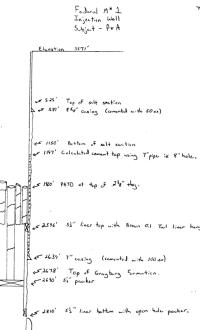 Federal "A" #1
Injection Well
Subject - P & A
Elevation 3571'
525' Top of salt section
8 5/8" casing (cemented with 50 sx)
1150' Bottom of salt section
1197' Calculated cement top using 7" pipe in 8" hole.
1900' PBTD at top of 2 3/8" tbg.
2596' 5 1/2" liner top with Brown Oil Tool liner hanger
2637' 7" casing (cemented with 100 sx)
2678' Top of Grayburg Formation.
2690' 5 1/2" packer
2810' 5 1/2" liner bottom with open hole packer.